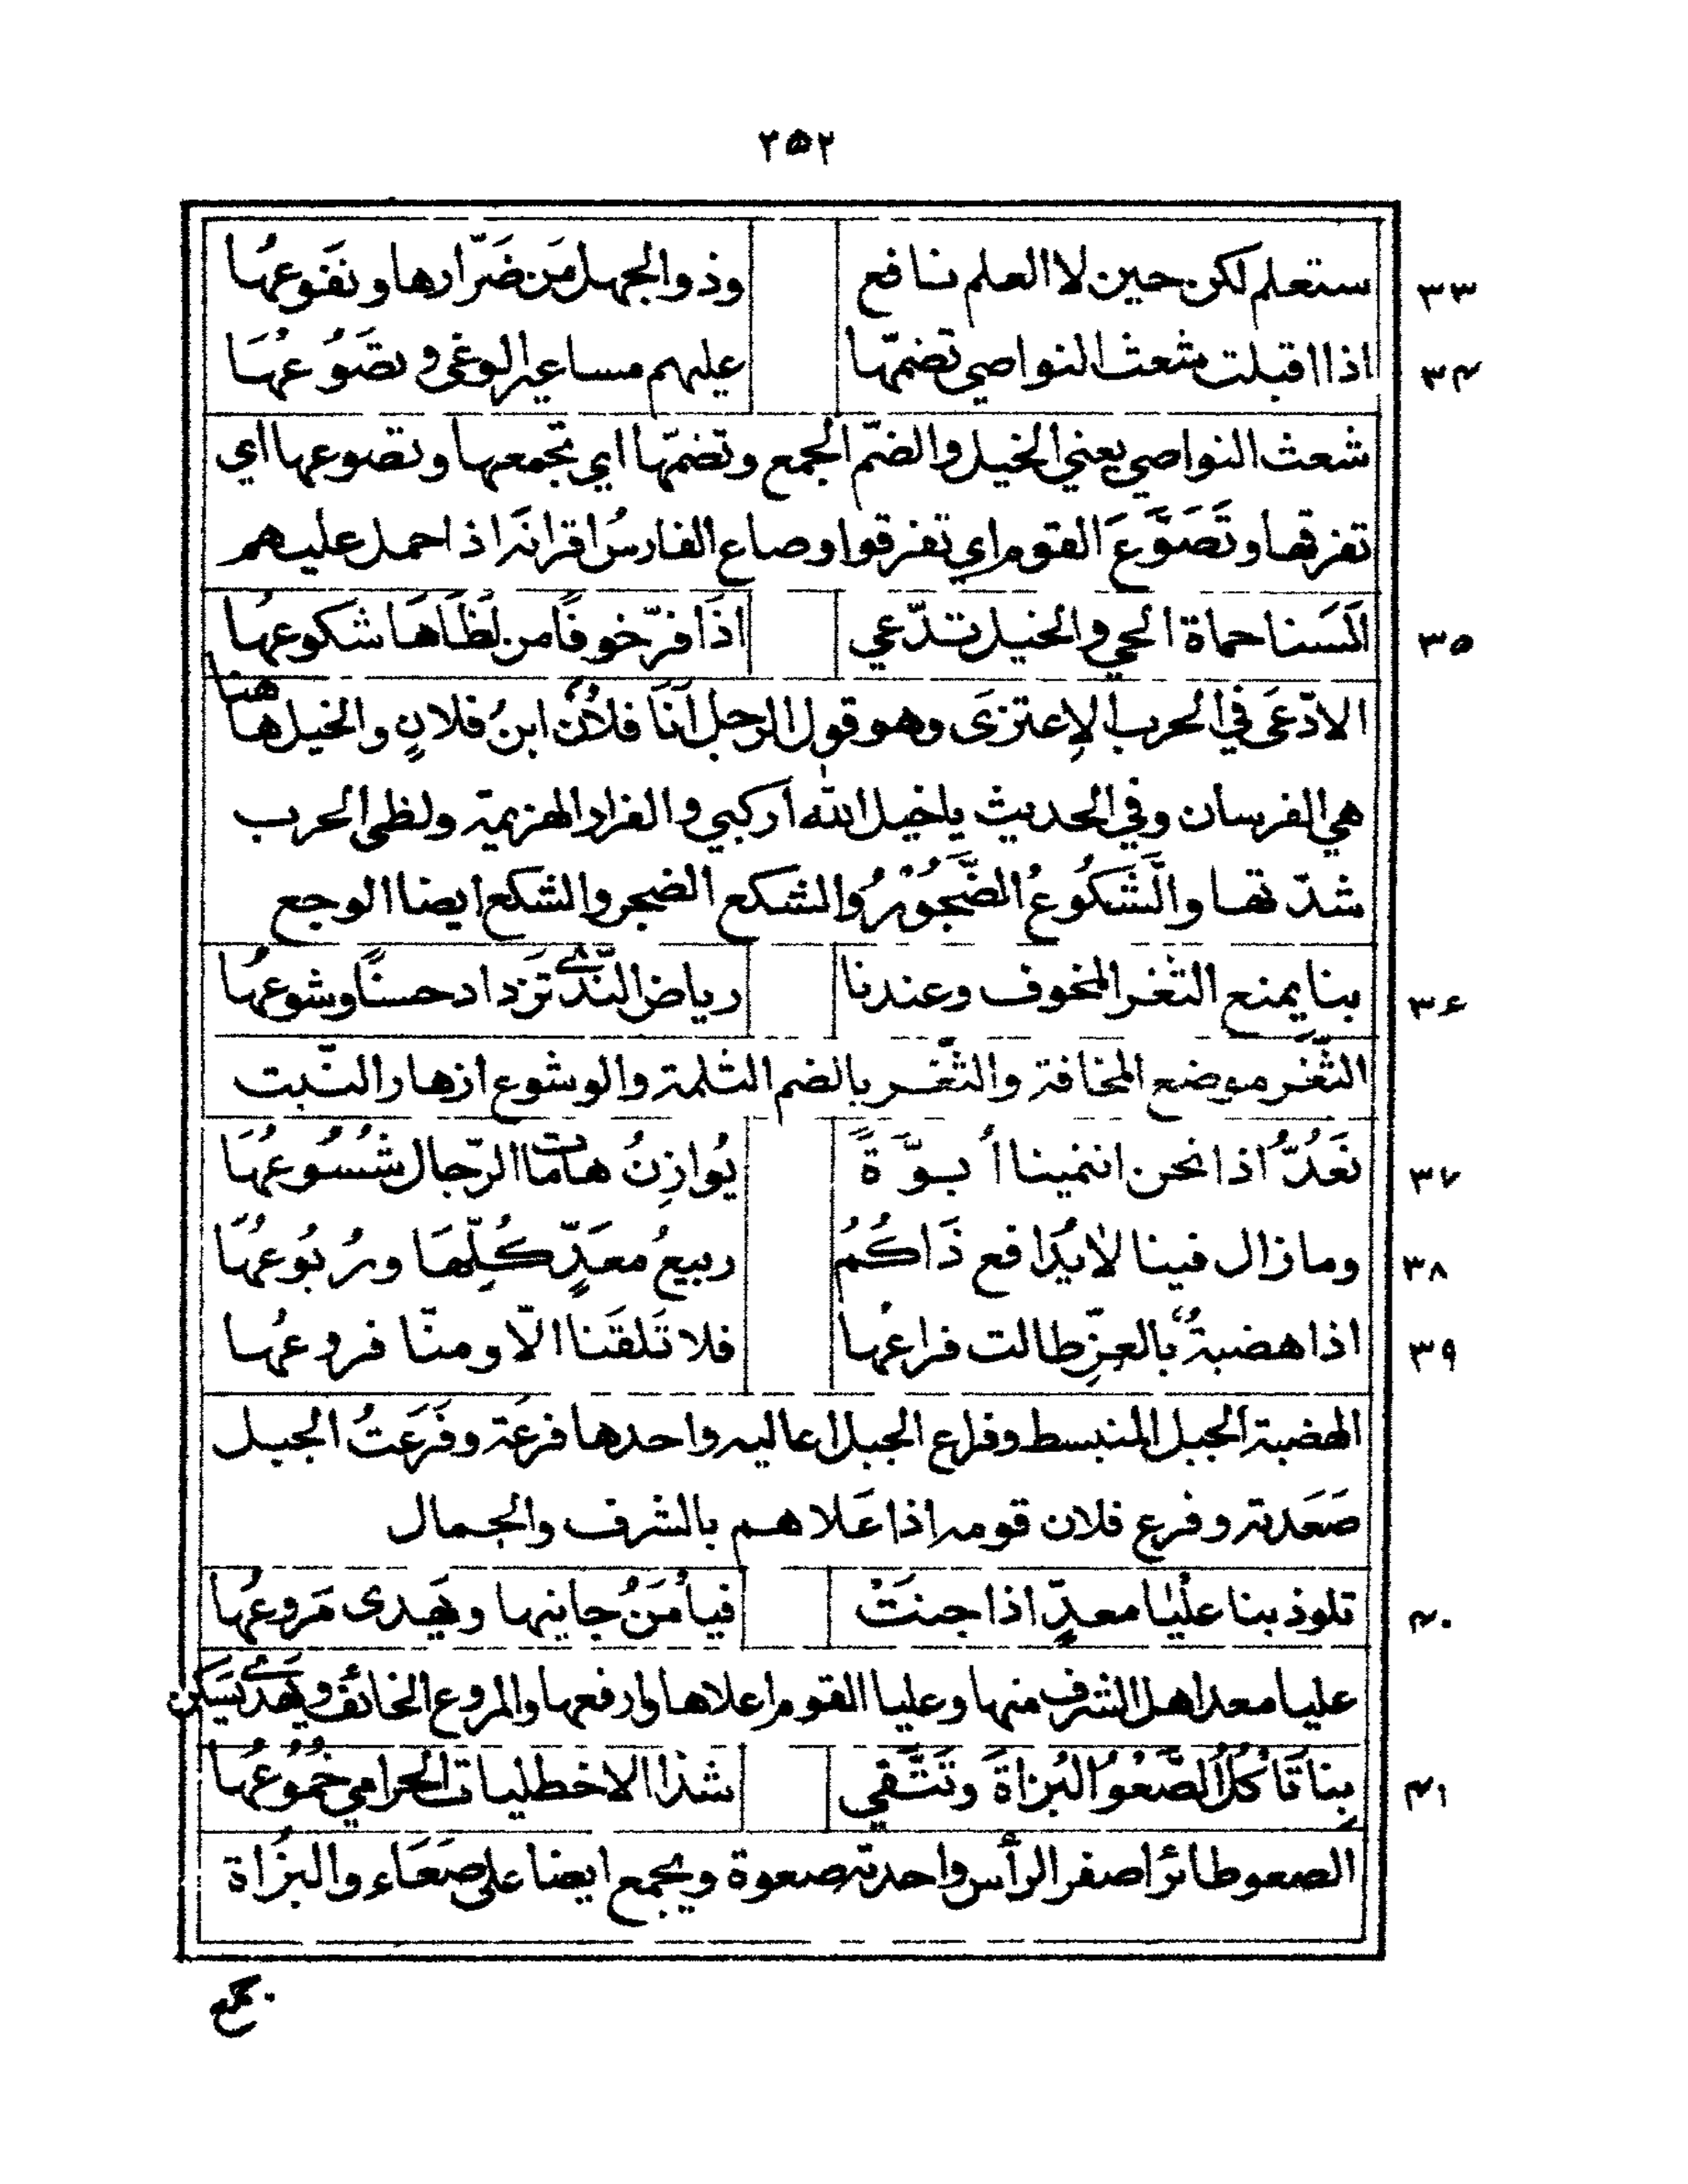 ٢٥٢
٣٣ ستعلم لكن حين لا العلم نافع وذو الجهل مَن ضَرّارها ونفوعهُا
٣٤ اذا اقبلت شعث النواصي تضمّها عليهم مساعير الوغى وتصَوُعهُا
شعث النواصي يعني الخيل والضمّ الجمع وتضمّها اي تجمعها وتصوعها اي
تفرقها وتَصَوَّعَ القوم اي تفرقوا وصاع الفارسُ اقرانَه اذا حمل عليهم
٣٥ اَلَسنا حماة الحي والخيل تدّعي اذَا فرّ خوفًا من لَظَاهَا شكوعهُا
الادّعَى في الحرب الاِعتزى وهو قول الرجل اَنَا فلانٌ ابنُ فلانٍ والخيل هاهنا
هي الفرسان وفي الحديث ياخيل الله اَركبي والفرار الهزيمة ولظى الحرب
شدّتها والَّشَكُوعُ الضَّجُوْرُ والشكع الضجر والشكع ايضا الوجع
٣٦ بنا يمنع الثغر المخوف وعندنا رياض النّدَى تَزداد حسنًا وشوعهُا
الثَّغر موضع المخافة والثَّغر بالضم الثلمة والوشوع ازهار النّبت
٣٧ نَعَدُّ اذا نحن انتمينا اُبوَّةً يُوازِنُ هامات الرّجال شُسُوعهُا
٣٨ وما زال فينا لايُدَافع ذَاكُمُ ربيعُ معَدٍّ كُلِّهَا ورُبُوعهُا
٣٩ اذا هضبةٌ بالعزّ طالت فراعُها فلا تَلقَنا الّا ومنّا فروعهُا
الهضبة الجبل المنبسط وفراع الجبل اعاليه واحدها فرعَة وفَرَعَتُ الجبل
صَعَدته وفرع فلان قومه اذا عَلاهم بالشرف والجمال
٤٠ تلوذ بنا عليْا معدٍّ اذا جنَتْ فيأمَنُ جانيها ويَهدى مَروعهُا
عليا معد اهل الشرف منها وعليا القوم اعلاها وارفعها والمروع الخائف ويَهدَى يَسكن
٤١ بِنا تَأكُلُ الصَّعْوُ البُزاةَ وتَتَّقي شذا الاخطليات الحرامي خُمُوعهُا
الصعو طائر اصفر الرأس واحدته صعوة ويجمع ايضا على صَعَاء والبزُاة
جمع